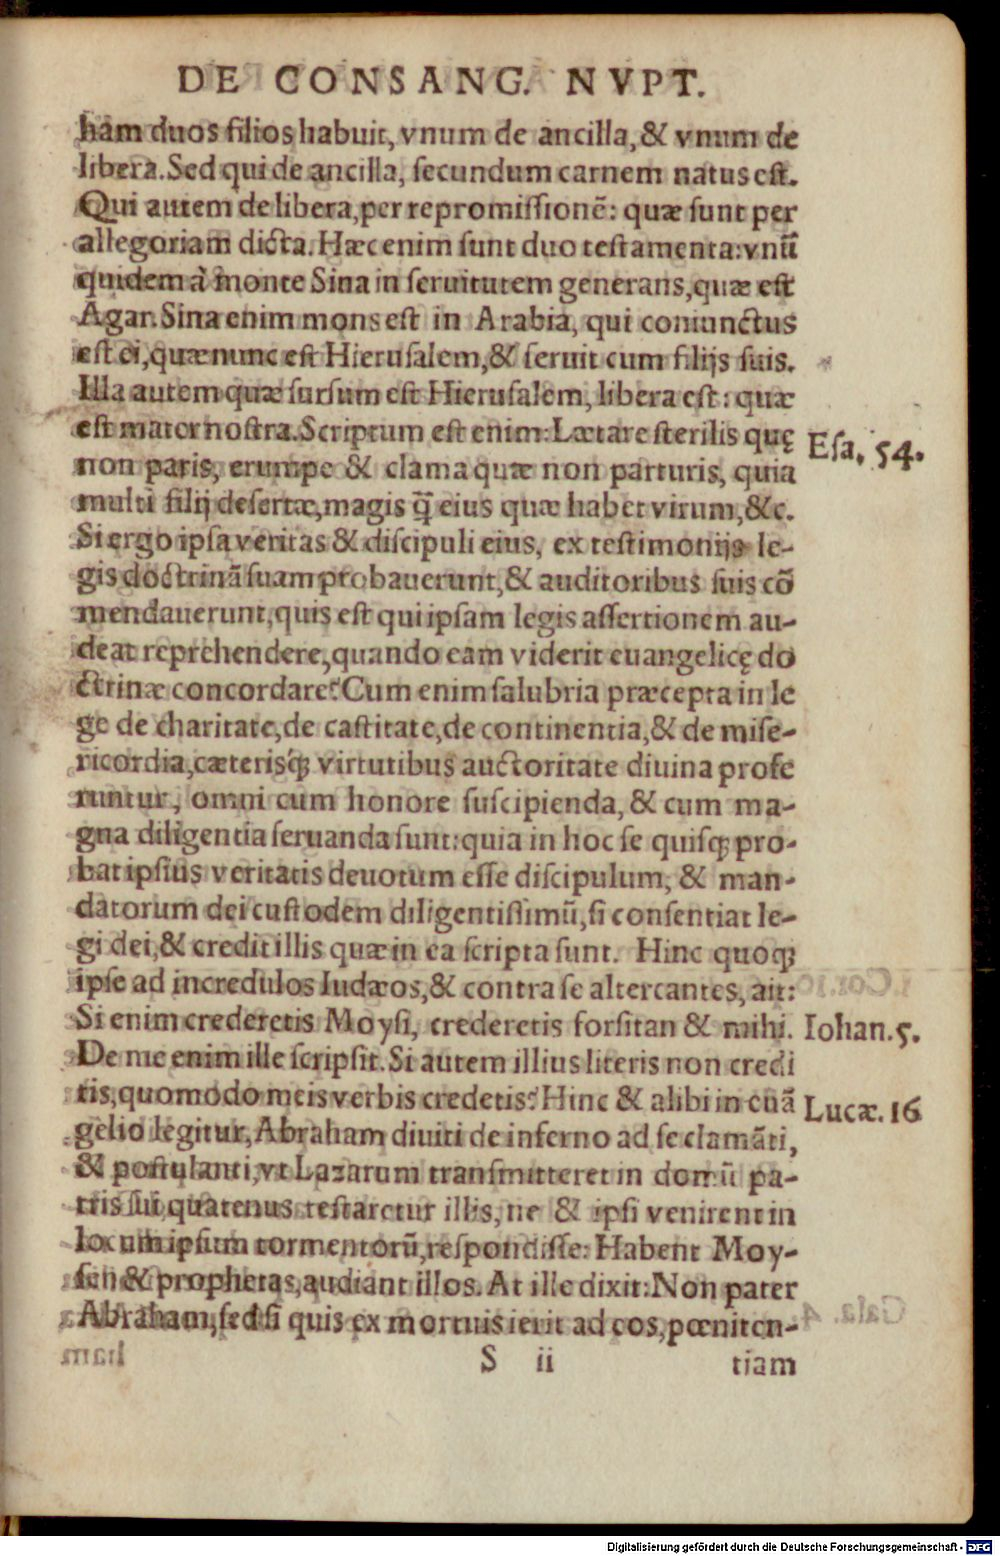 DE CONSANG. NVPT.
ham duos filios habuit, vnum de ancilla, & vnum de
libera. Sed qui de ancilla, secundum carnem natus est.
Qui autem de libera, per repromissionē: quæ sunt per
allegoriam dicta. Hæc enim sunt duo testamenta: vnū
quidem à monte Sina in seruitutem generans, quæ est
Agar. Sina enim mons est in Arabia, qui coniunctus
est ei, quæ nunc est Hierusalem, & seruit cum filijs suis.
Illa autem quæ sursum est Hierusalem, libera est: quæ
est mater nostra. Scriptum est enim: Lætare sterilis quę
Esa. 54.
non paris, erumpe & clama quæ non parturis, quia
multi filij desertæ, magis q̄ eius quæ habet virum, &c.
Si ergo ipsa veritas & discipuli eius, ex testimonijs le-
gis doctrinā suam probauerunt, & auditoribus suis cō
mendauerunt, quis est qui ipsam legis assertionem au-
deat reprehendere, quando eam viderit euangelicę do
ctrinæ concordare? Cum enim salubria præcepta in le
ge de charitate, de castitate, de continentia, & de mise-
ricordia, cæterisq́; virtutibus auctoritate diuina profe
runtur, omni cum honore suscipienda, & cum ma-
gna diligentia seruanda sunt: quia in hoc se quisq; pro-
bat ipsius veritatis deuotum esse discipulum, & man-
datorum dei custodem diligentissimū, si consentiat le-
gi dei, & credit illis quæ in ea scripta sunt. Hinc quoq;
ipse ad incredulos Iudæos, & contra se altercantes, ait:
Si enim crederetis Moysi, crederetis forsitan & mihi.
Iohan. 5.
De me enim ille scripsit. Si autem illius literis non credi
tis, quomodo meis verbis credetis? Hinc & alibi in euā
Lucæ. 16
gelio legitur, Abraham diuiti de inferno ad se clamāti,
& postulanti, vt Lazarum transmitteret in domū pa-
tris sui, quatenus testaretur illis, ne & ipsi venirent in
locum ipsum tormentorū, respondisse: Habent Moy-
sen & prophetas, audiant illos. At ille dixit: Non pater
Abraham, sed si quis ex mortuis ierit ad eos, pœniten-
S ii
tiam
Digitalisierung gefördert durch die Deutsche Forschungsgemeinschaft - DFG